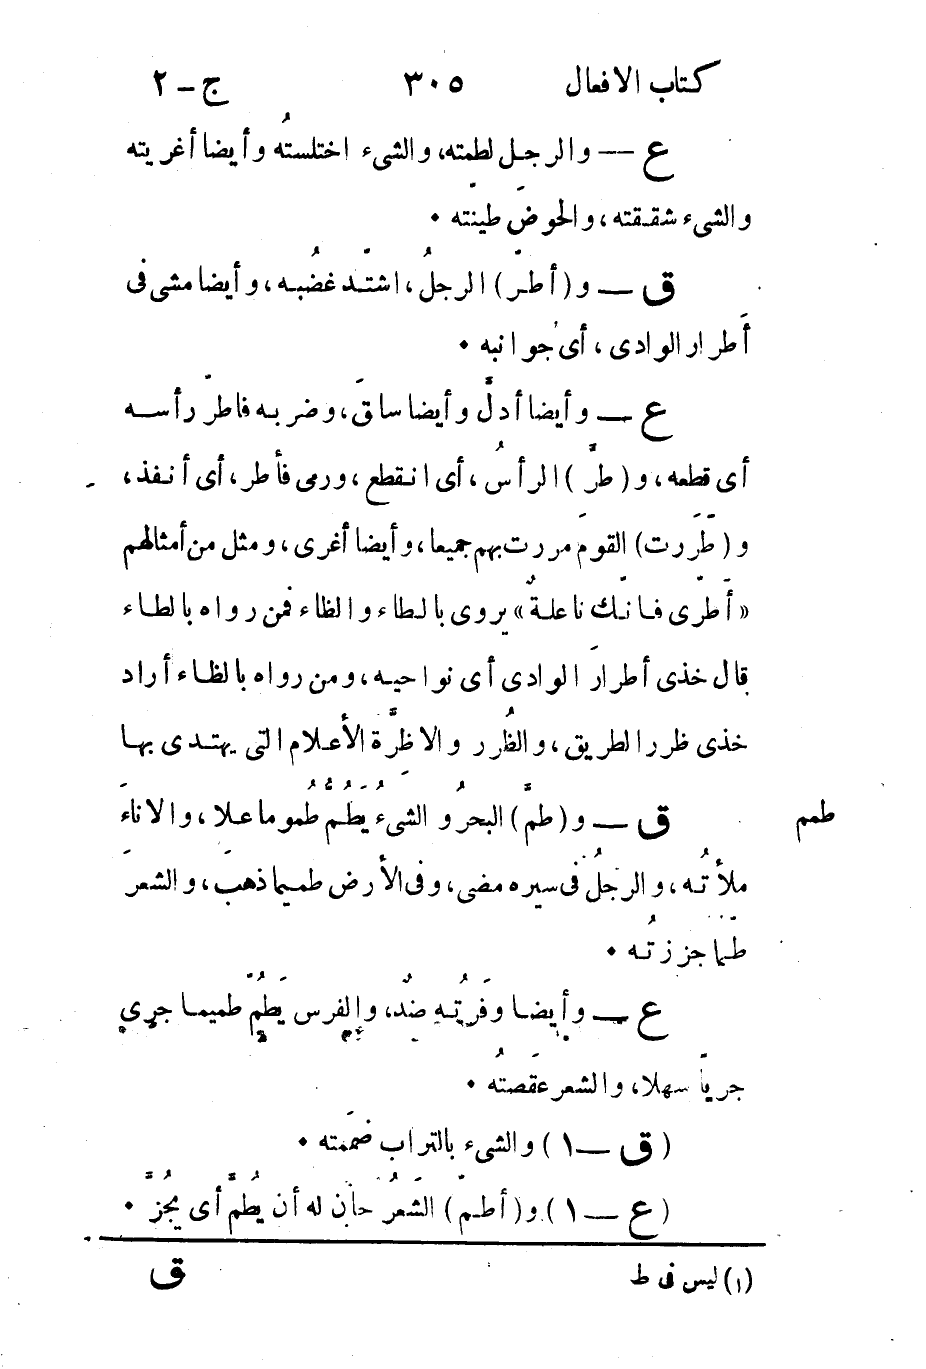 كتاب الافعال ٣٠٥ ج - ٢
ع — والرجل لطمته، والشىء اختلستُه وأيضا أغريته
والشىء شققته، والحوضَ طيّنته •
ق — و (أطرّ) الرجلُ، اشتدّ غضبُه، وأيضا مشى فى
أَطرار الوادى، أى جوانبه •
ع — وأيضا أدلَّ وأيضا ساقَ، وضربه فاطرّ رأسه
أى قطعه، و (طرَّ) الرأسُ، أى انقطع، ورمى فأطر، أى أنفذ،
و (طَررت) القومَ مررت بهم جميعا، وأيضا أغرى، ومثل من أمثالهم
«أَطرّى فانّك ناعلةٌ» يروى بالطاء والظاء فمن رواه بالطاء
قال خذى أطرارَ الوادى أى نواحيه، ومن رواه بالظاء أراد
خذى ظرر الطريق، والظُرر والاظرَّة الأعلام التى يهتدى بها
طمم
ق — و (طمَّ) البحرُ والشىءُ يَطُمُّ طُموما علا، والاناءَ
ملأتُه، والرجلُ فى سيره مضى، وفى الأرض طميما ذهبَ، والشعرَ
طمّا جززتُه •
ع — وأيضا وفّرَتُه ضدٌ، والفرس يَطُمّ طميما جرى
جريا سهلا، والشعرَ عقصتُه •
(ق — ١) والشىء بالتراب ضمَمته •
(ع — ١) و (أطمّ) الشعرُ حانَ له أن يُطمَّ أى يُجزَّ •
(١) ليس فى ط
ق